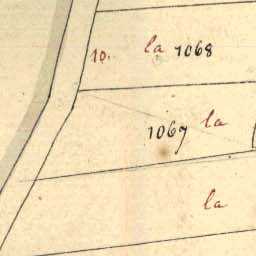 10. la 1068
1067 la
la